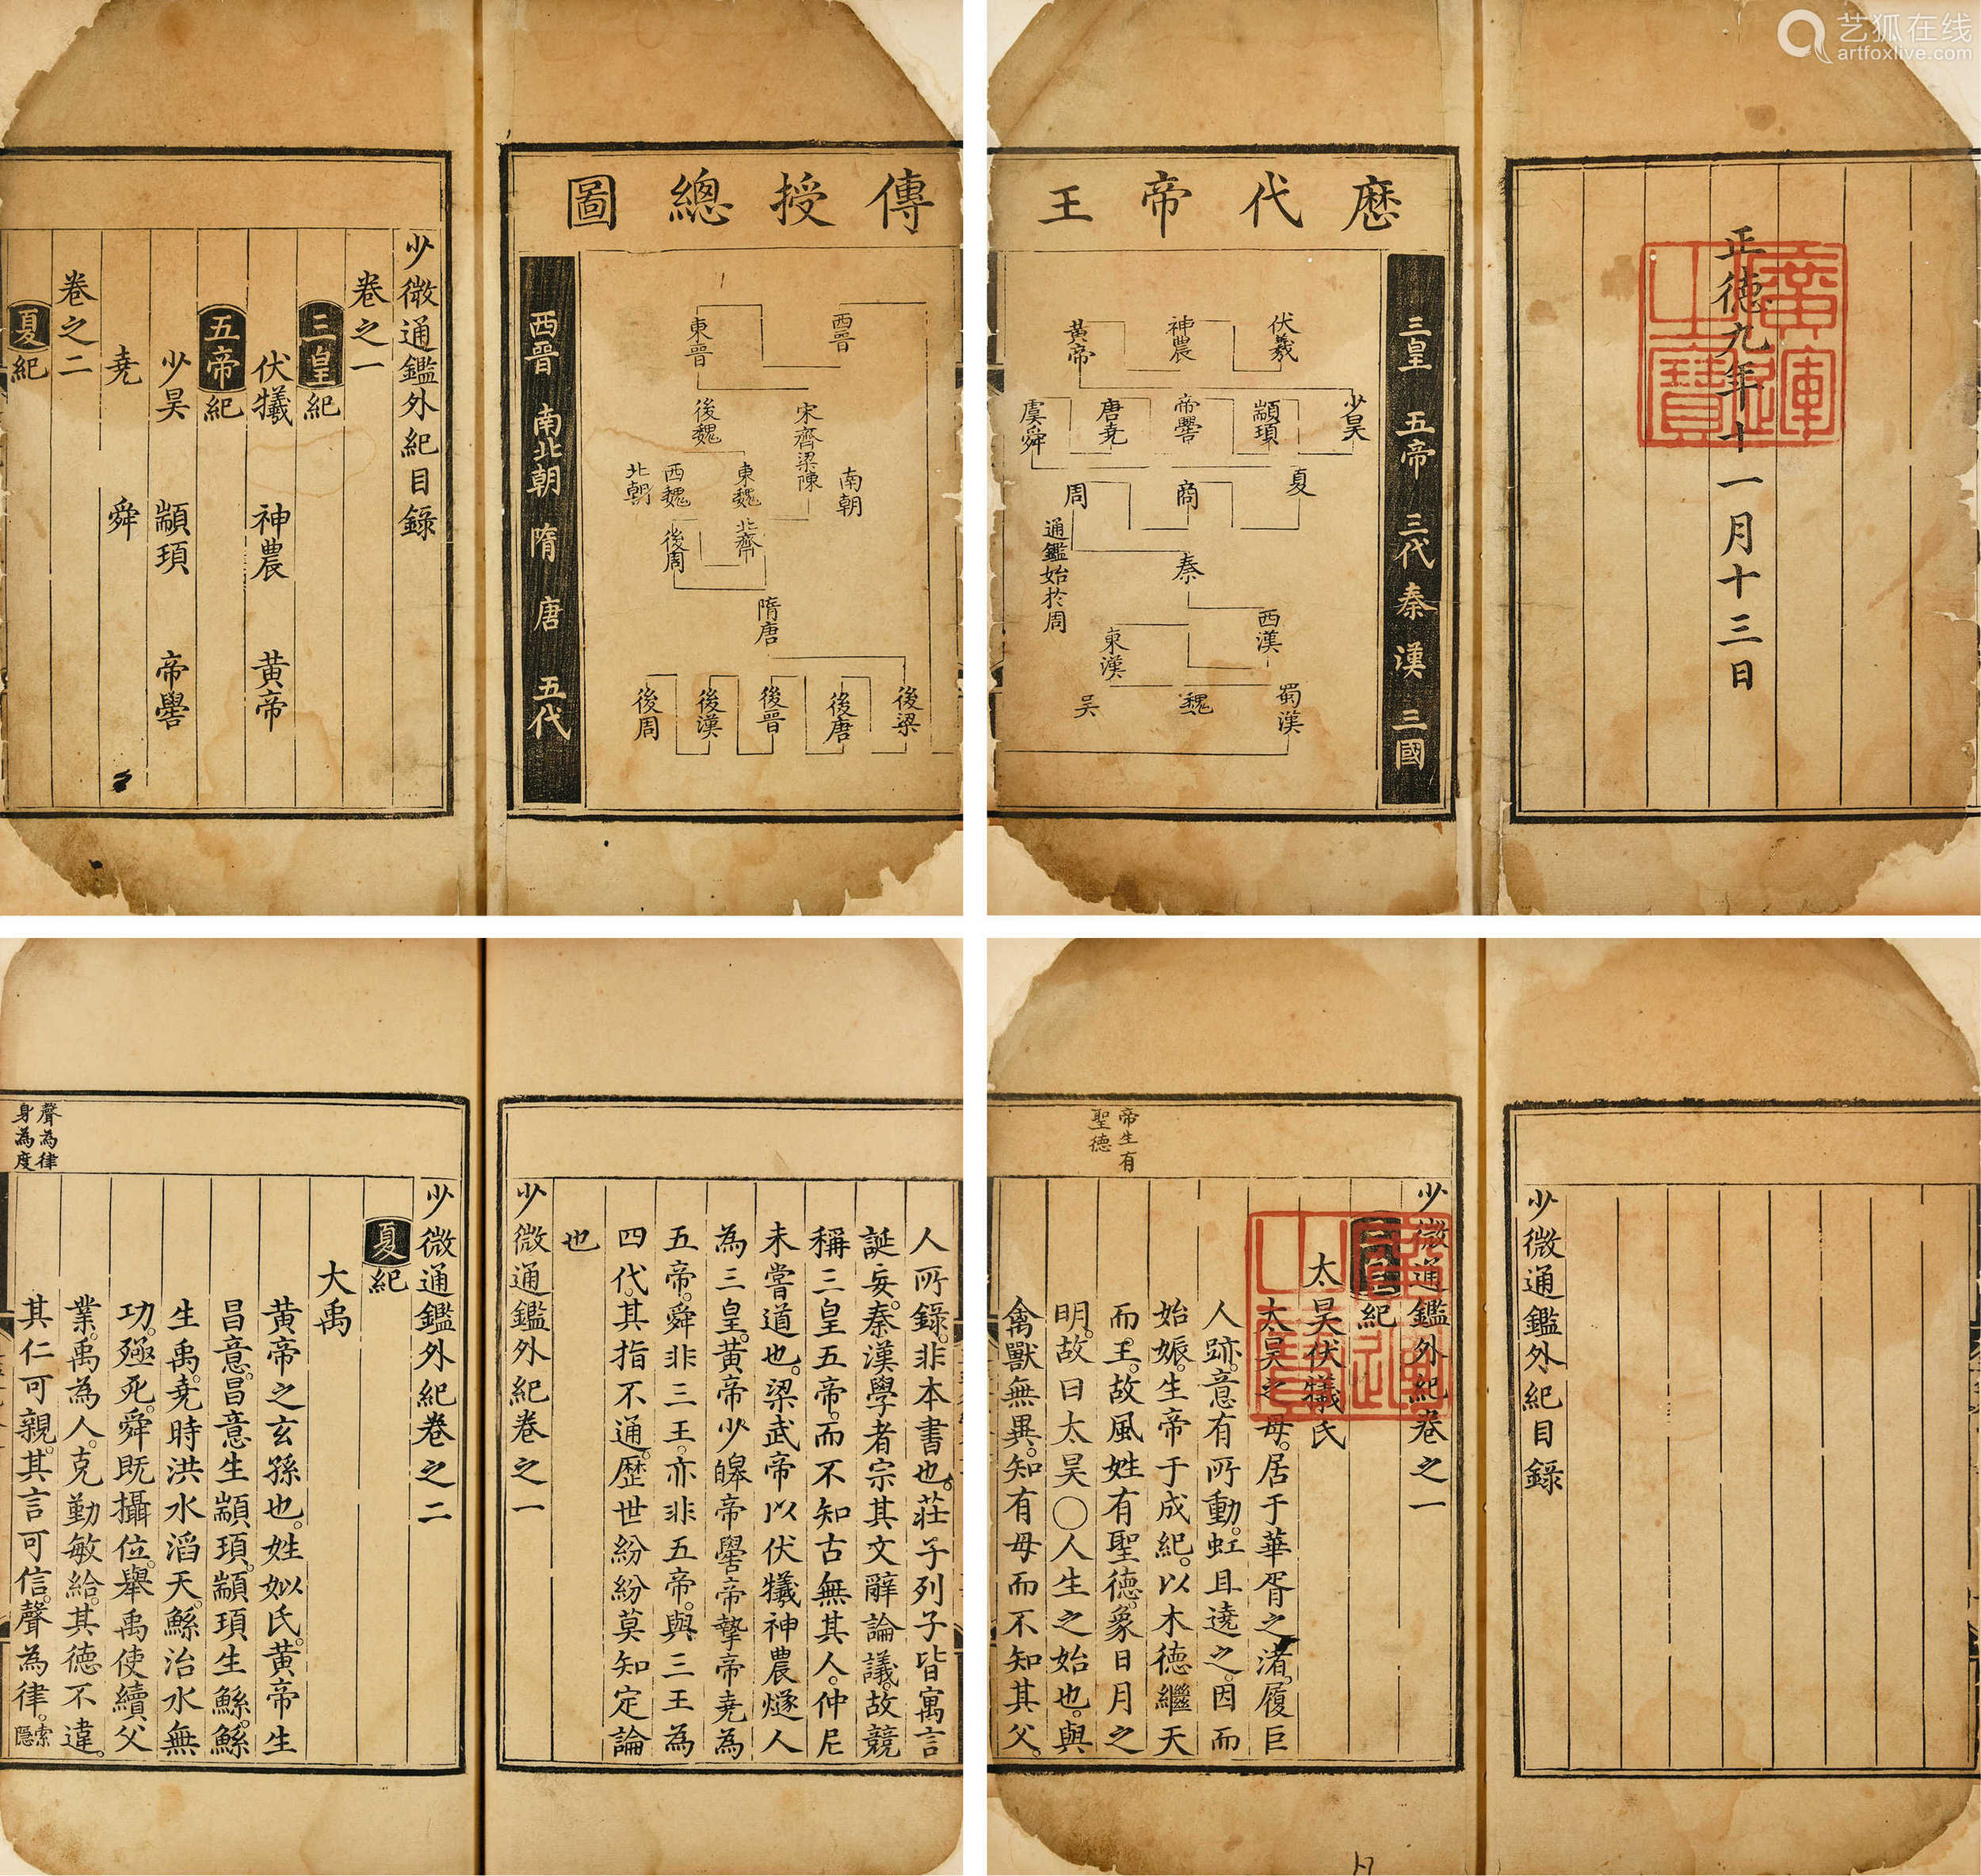 艺狐在线
artfoxlive.com
正德九年十一月十三日
廣運之寶
歷代帝王
三皇 五帝 三代 秦 漢 三國
伏羲
神農
黃帝
少昊
顓頊
帝嚳
唐堯
虞舜
夏
商
周
通鑑始於周
秦
西漢
東漢
蜀漢
魏
吳
傳授總圖
西晉
東晉
宋齊梁陳
南朝
後魏
東魏
西魏
北朝
北齊
後周
隋唐
後梁
後唐
後晉
後漢
後周
西晉 南北朝 隋 唐 五代
少微通鑑外紀目錄
卷之一
三皇紀
伏犧 神農 黃帝
五帝紀
少昊 顓頊 帝嚳
堯 舜
卷之二
夏紀
少微通鑑外紀目錄
帝生有
聖德
少微通鑑外紀卷之一
三皇紀
太昊伏犧氏
太昊之母。居于華胥之渚。履巨
人跡。意有所動。虹且遶之。因而
始娠。生帝于成紀。以木德繼天
而王。故風姓。有聖德。象日月之
明。故曰太昊○人生之始也。與
禽獸無異。知有母而不知其父。
人所錄。非本書也。莊子列子皆寓言
誕妄。秦漢學者宗其文辭論議。故競
稱三皇五帝。而不知古無其人。仲尼
未嘗道也。梁武帝以伏犧神農燧人
為三皇。黃帝少皞帝嚳帝摯帝堯為
五帝。舜非三王。亦非五帝。與三王為
四代。其指不通。歷世紛紛莫知定論
也
少微通鑑外紀卷之一
聲為律
身為度
少微通鑑外紀卷之二
夏紀
大禹
黃帝之玄孫也。姓姒氏。黃帝生
昌意。昌意生顓頊。顓頊生鯀。鯀
生禹。堯時洪水滔天。鯀治水無
功。殛死。舜既攝位。舉禹使續父
業。禹為人。克勤敏給。其德不違。
其仁可親。其言可信。聲為律。索隱